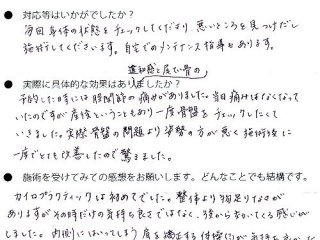 ● 対応等はいかがでしたか?
毎回身体の状態をチェックしてくださり、悪いところを見つけだし
施術してくださいます。自宅でのメンテナンス指導もあります。
● 実際に具体的な効果はありましたか?
違和感と尾てい骨の
予約した時には股関節の痛みがありました。当日痛みはなくなって
いたのですが産後ということもあり一度骨盤をチェックしたくて
いきました。実際骨盤の問題より姿勢の方が悪く施術後に
一度でとても改善したので驚きました。
● 施術を受けてみての感想をお願いします。どんなことでも結構です。
カイロプラクティックは初めてでした。整体より物足りなさが
ありますがその時だけの気持ち良さではなく、後から効いてくる感じが
しました。内側にはいってしまう肩を矯正する